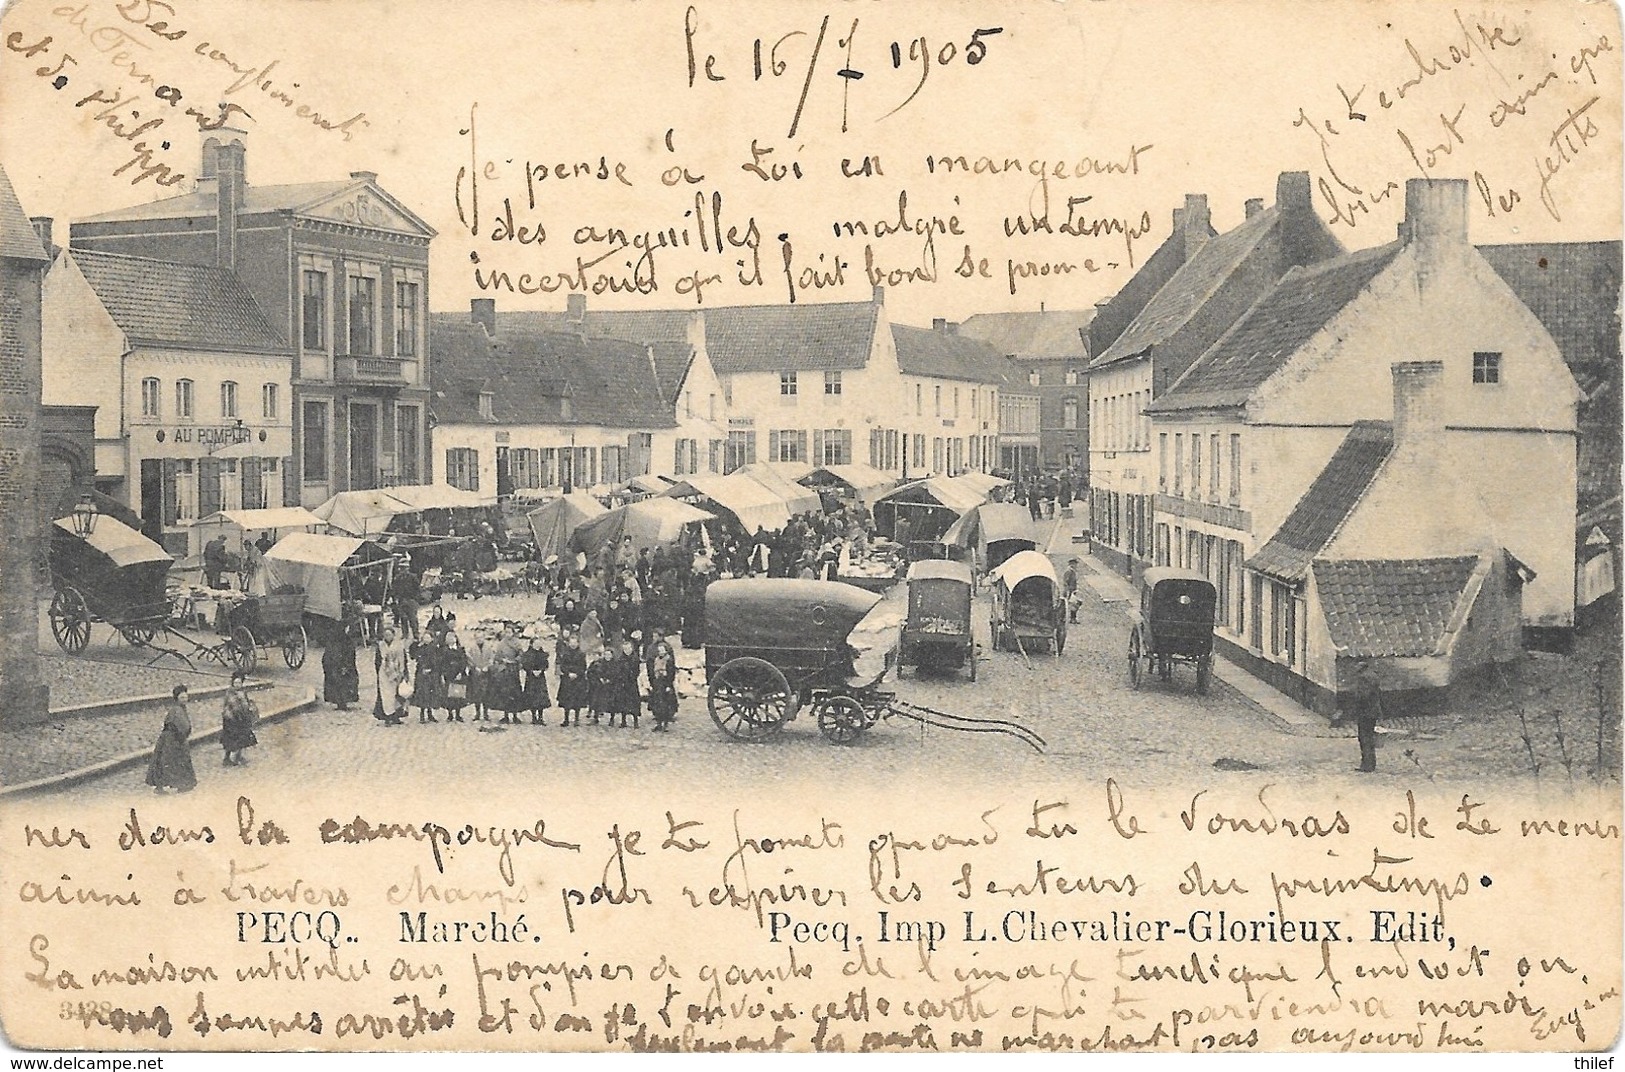 Des compliments
de Fernand
et de Philippe
le 16/7 1905
Je t'embrasse
bien fort ainsi que
les petits
Je pense à toi en mangeant
des anguilles. malgré un temps
incertain qu'il fait bon se prome-
AU POMPIER
ner dans la campagne je te promets quand tu le voudras de te mener
ainsi à travers champs pour respirer les senteurs du printemps.
PECQ.. Marché. Pecq. Imp L. Chevalier-Glorieux. Edit,
La maison intitulée au pompier à gauche de l'image t'indique l'endroit où
3438
nous sommes arrêtés et d'où je t'envoie cette carte qui te parviendra mardi
seulement la poste ne marchant pas aujourd'hui
Eugène
www.delcampe.net
thilef